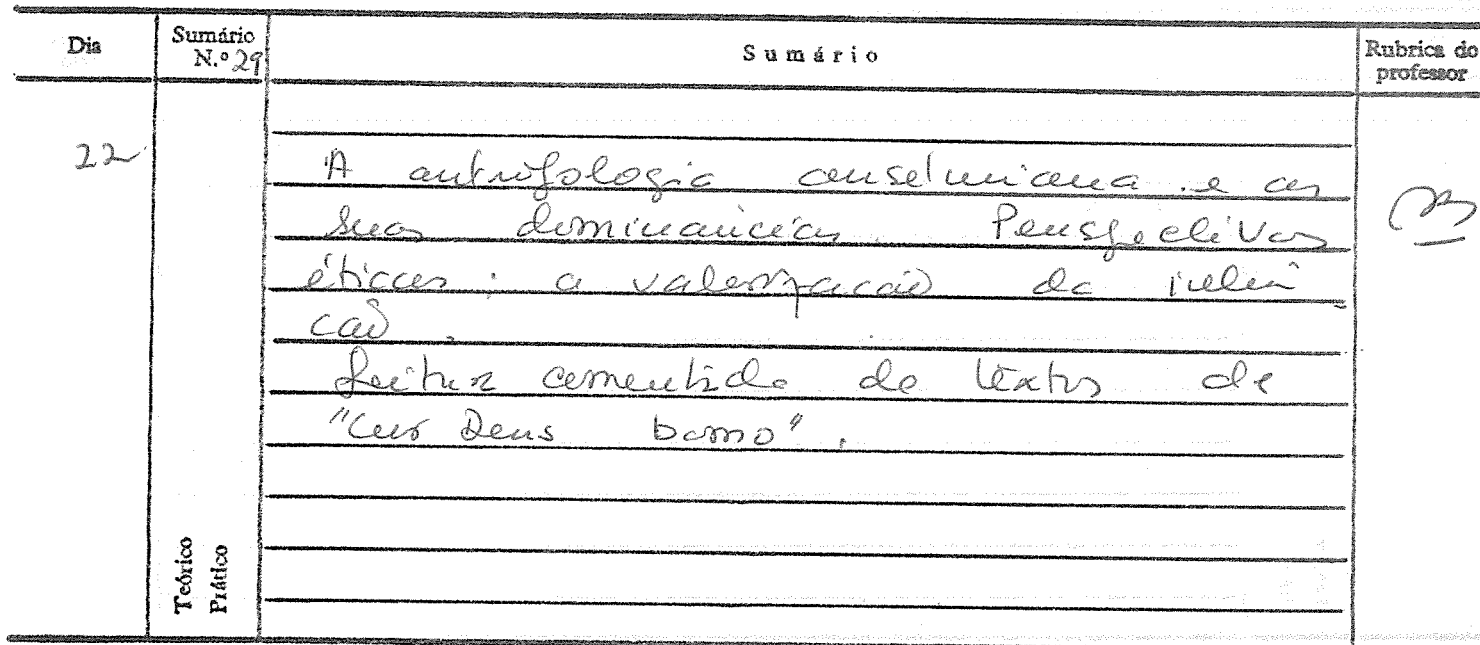 Dia
Sumário
N.º 29
Sumário
Rubrica do
professor
22
A antropologia anselmiana e as
suas dominâncias. Perspectivas
éticas: a valorização da inten
ção.
Leitura comentada de textos de
"Cur Deus homo".
Teórico
Prático